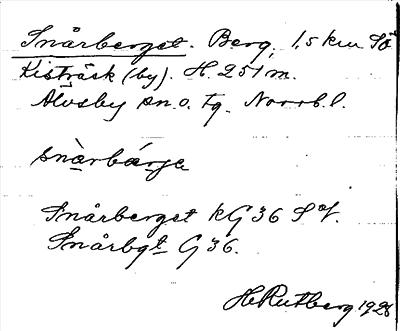 Snårberget. Berg. 1,5 km SÖ
Kisträsk (by). H. 251 m.
Älvsby sn. o. tg. Norrb. l.
snàrbárja
Snårberget kG 36 S
Snårbgt G 36.
H Rutberg 1928